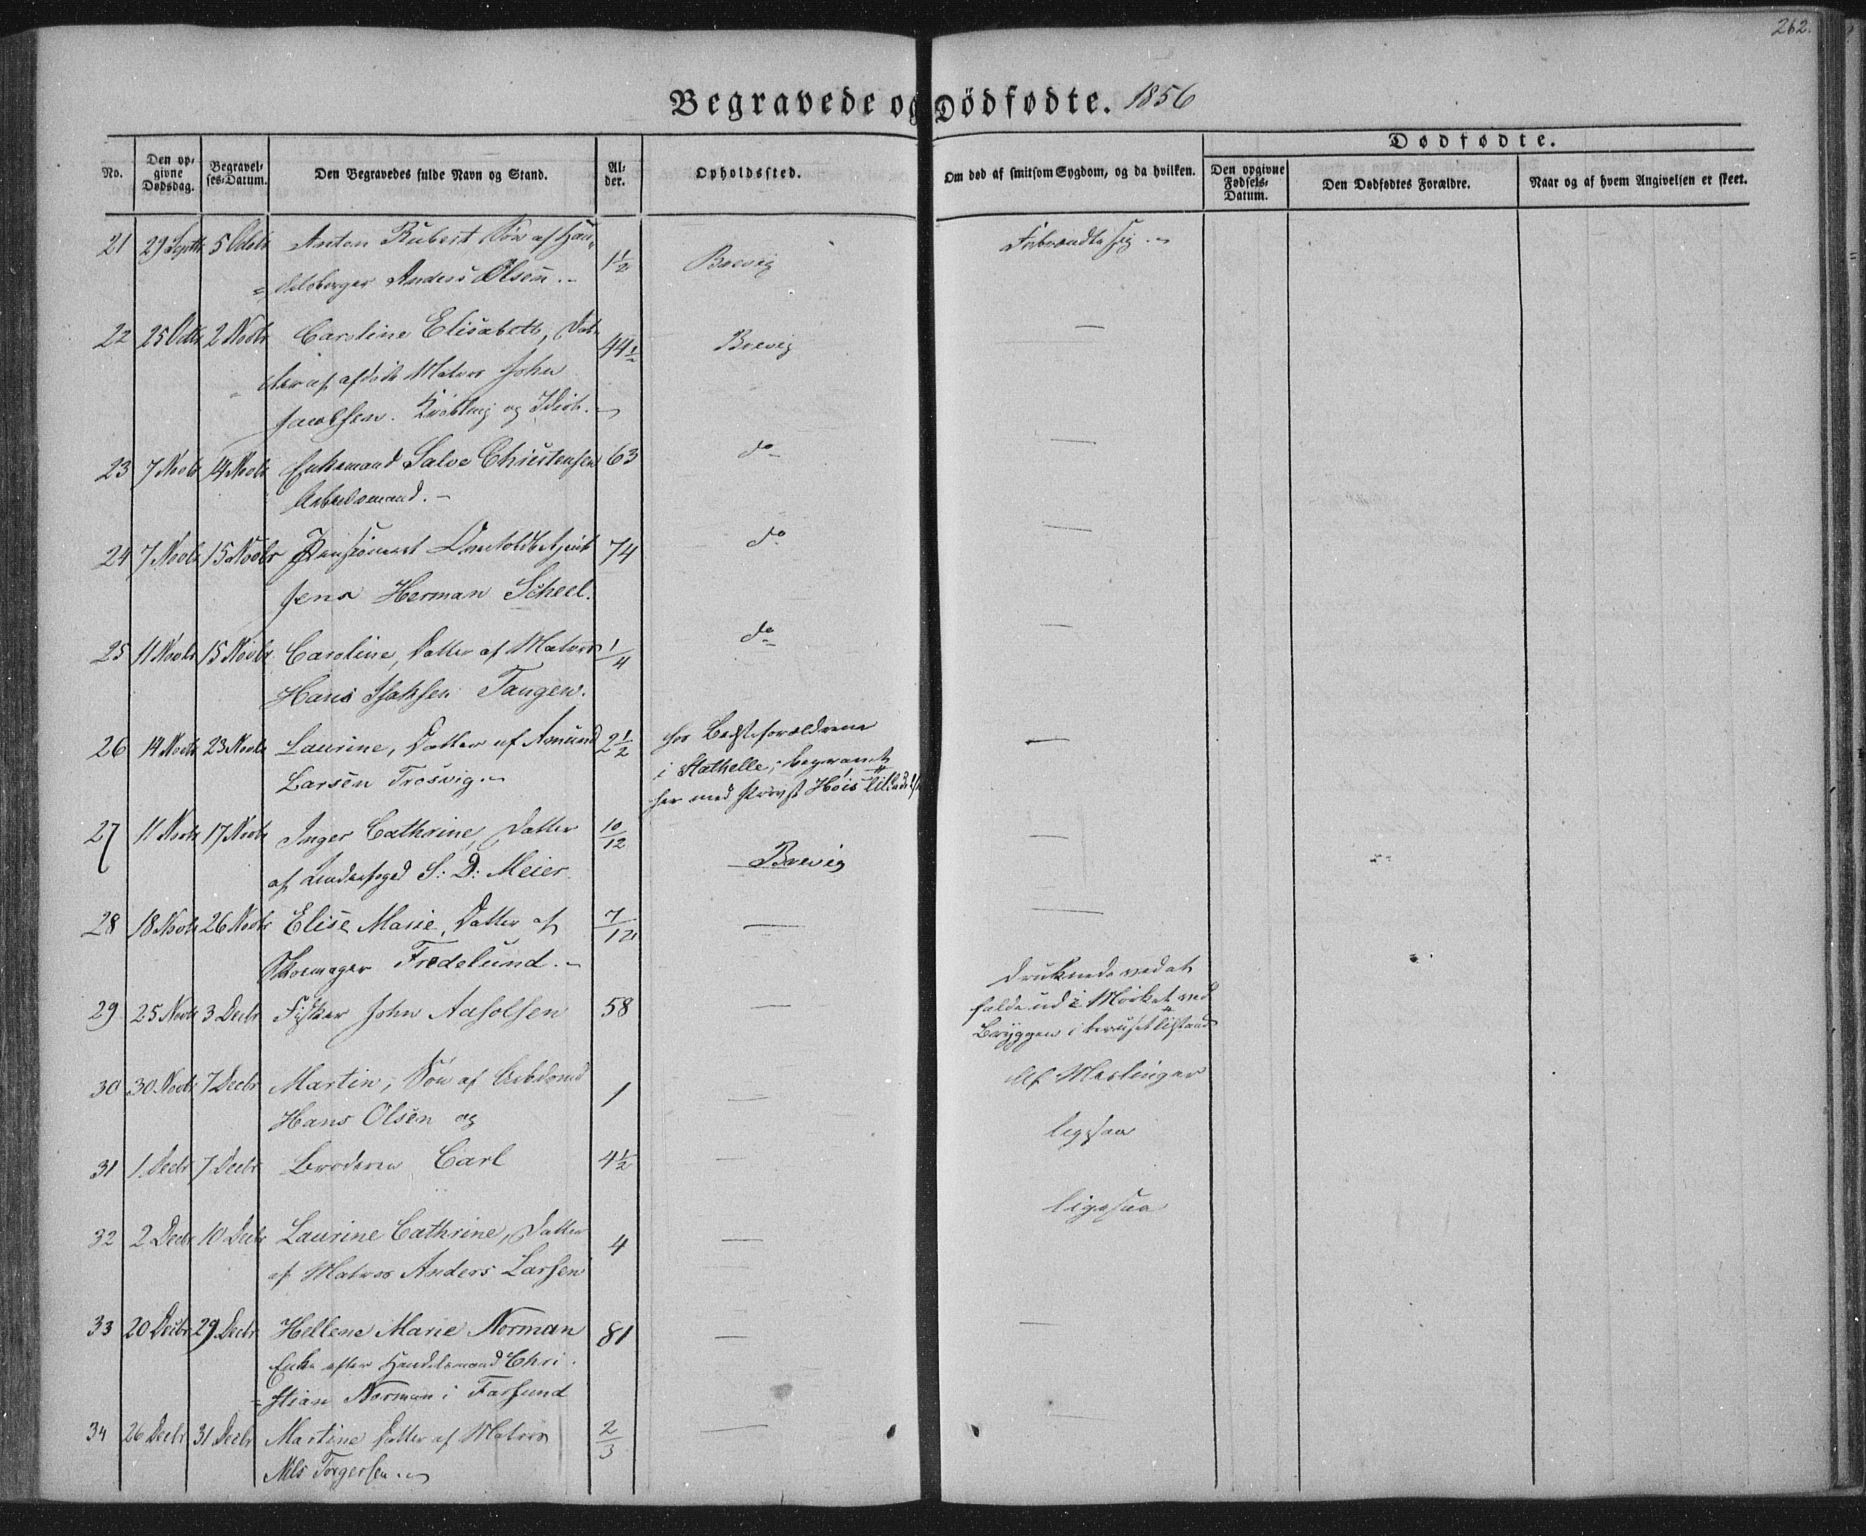 262.
Begravede og Dödfødte. 1856
Dødfødte.
No.
Den op-
givne
Dødsdag.
Begravel-
ses-Datum.
Den Begravedes fulde Navn og Stand.
Al-
der.
Opholdssted.
Om død af smitsom Sygdom, og da hvilken.
Den opgivne
Fødsels-
Datum.
Den Dødfødtes Forældre.
Naar og af hvem Angivelsen er skeet.
21 29 Septbr 5 Octobr Anton Robert Søn af Han- 1½ Brevig Forbrændte sig.
=delsborger Anders Olsen.
22 25 Octbr 2 Novbr Caroline Elisabeth, Dat- 44½ Brevig —
ter af afdøde Matros John
Jacobsen. Krøbling og Idiot.
23 7 Novbr 14 Novbr Enkemand Salve Christensen 63 do —
Arbeidsmand.
24 7 Novbr 15 Novbr Pensioneret 74 do —
Jens Herman Scheel.
25 11 Novbr 15 Novbr Caroline, Datter af Matros 1/4 do —
Hans Isaksen Tangen.
26 14 Novbr 23 Novbr Laurine, Datter af Amund 2½ hos Bedsteforældrene —
Larsen Trosvig. i Stathelle; begravet
her med Provst Høis
27 11 Novbr 17 Novbr Inger Cathrine, Datter 10/12 Brevig —
af Underfoged S: D: Meier.
28 18 Novbr 26 Novbr Elise Marie, Datter af 7/12 — —
Skomager Fredelund.
29 25 Novbr 3 Decbr Fisker John Aasolsen 58 — Druknede ved at
falde ud i Mørket ved
Bryggen i beruset Tilstand
30 30 Novbr 7 Decbr Martin, Søn af Arbdsmd 1 — Af Meslinger
Hans Olsen og
31 1 Decbr 7 Decbr Broderen Carl 4½ — ligesaa
32 2 Decbr 10 Decbr Laurine Cathrine, Datter 4 — ligesaa
af Matros Anders Larsen
33 20 Decbr 29 Decbr Hellene Marie Norman 81 — —
Enke efter Handelsmand Chri-
=stian Norman i Farsund
34 26 Decbr 31 Decbr Martine Datter af Matros 2/3 —
Nils Torgersen.